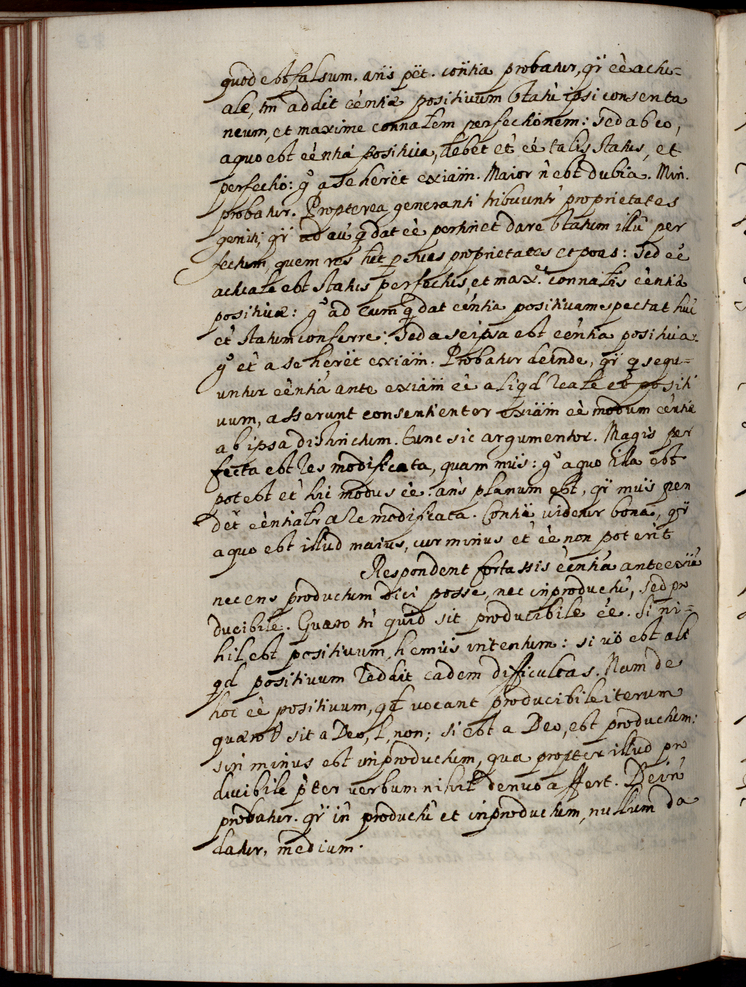 quod est falsum. añs pët. coñtia probatur, qȓ eê actu-
ale, tñ addit eêntiæ positivum statũ ipsi consenta
neum, et maxime connatem perfectionem: sed ab eo,
a quo est eêntia positiva, debet et eê talis status, et
perfectio: gº a se herët exiam. Maior ñ est dubia. Min.
probatur. Propterea generanti tribuunt proprietates
geniti; qȓ ad eũ q dat eê pertinet dare statum illũ per
fectum, quem res hët p suas proprietates et poas: sed eê
actuale est status perfectus, et maxê connatis eêntiæ
positivæ: gº ad eum q dat eêntia positivam spectat huic
et statum conferre: sed a seipsa est eêntia positiva:
gº et a se herët exiam. Probatur deinde, qȓ q sequ-
untur eêntiã ante exiam eê aliqd reale et positi
uum, asserunt consentienter exiam eê modum eêntiæ
ab ipsa distinctum. tunc sic argumentor. Magis per
fecta est res modificata, quam mus: gº a quo illa est
pot est et hic modus eê: añs planum est, qȓ mus pen
det eêntialr a re modificata. Contia videtur bona, qȓ
a quo est illud maius, cur minus et eê non poterit
Respondent fortassis eêntiã ante exiã
nec ens productum dici posse, nec inproductũ, sed pro
ducibile. Quæro tñ quid sit producibile eê. si ni-
hil est positivum, hemus intentum: si vº est ali
qd positivum reddit eadem difficultas. Nam de
hoc eê positivum, qd vocant producibile iterum
quæro sit a Deo, l, non; si est a Deo, est productum:
sin minus est inproductum, qua propter illud pro
ducibile pter verbum nihil denuo affert. Dein
probatur. qȓ iñ productũ et inproductum, nullum da
datur, medium.